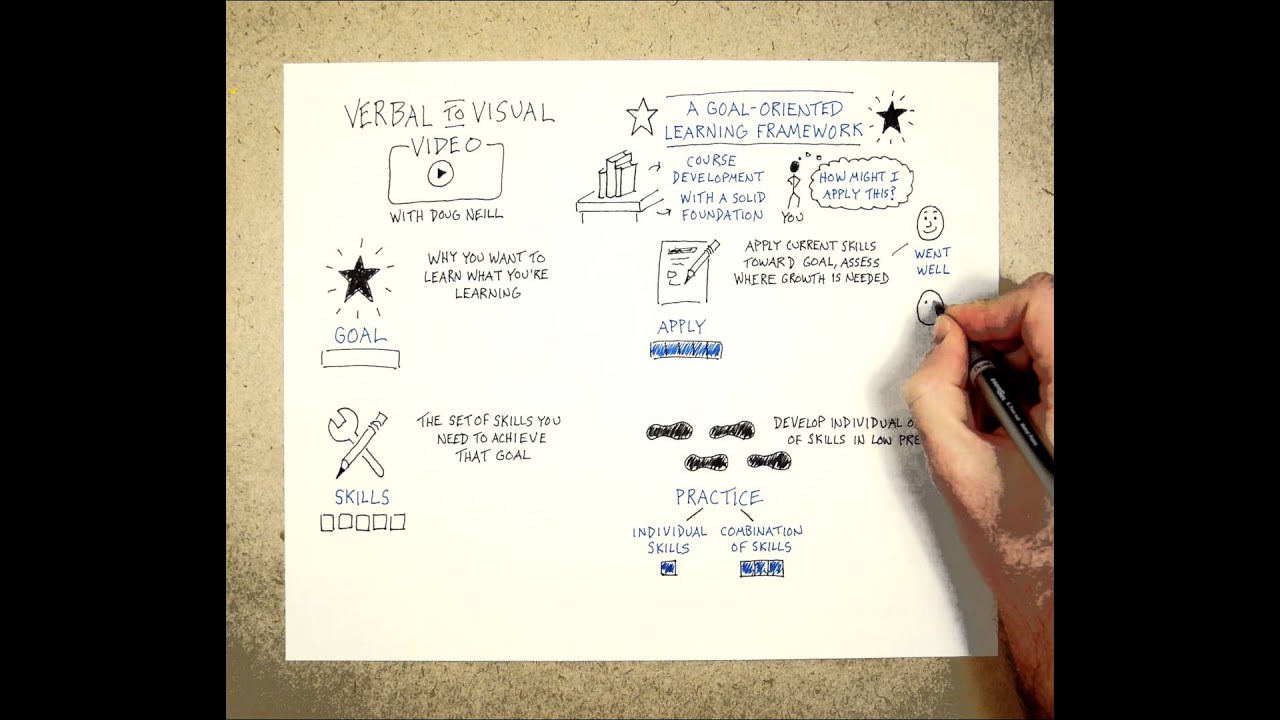 VERBAL TO VISUAL
VIDEO
WITH DOUG NEILL
A GOAL-ORIENTED
LEARNING FRAMEWORK
COURSE
DEVELOPMENT
WITH A SOLID
FOUNDATION
YOU
HOW MIGHT I
APPLY THIS?
WHY YOU WANT TO
LEARN WHAT YOU'RE
LEARNING
GOAL
APPLY CURRENT SKILLS
TOWARD GOAL, ASSESS
WHERE GROWTH IS NEEDED
WENT
WELL
APPLY
THE SET OF SKILLS YOU
NEED TO ACHIEVE
THAT GOAL
SKILLS
DEVELOP INDIVIDUAL
OF SKILLS IN LOW
PRACTICE
INDIVIDUAL
SKILLS
COMBINATION
OF SKILLS